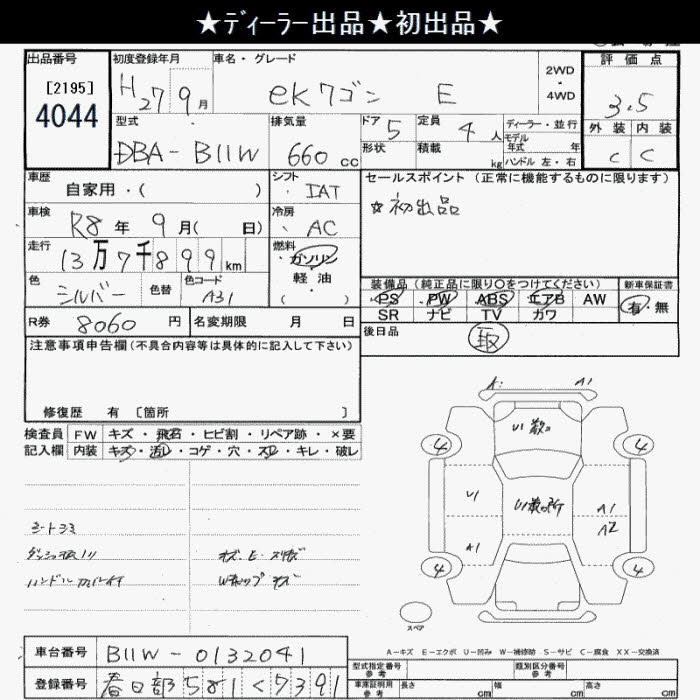 ★ディーラー出品★初出品★
出品番号 初度登録年月 車名・グレード 評価点
[2195] H27 9月 eKワゴン E 2WD・4WD 3.5
4044
型式 排気量 ドア 定員 ディーラー・並行 外装 内装
DBA-B11W 660cc 5 4人 モデル年式 年 C C
形状 積載 kg ハンドル 左・右
車歴 シフト セールスポイント (正常に機能するものに限ります)
自家用・( ) IAT
☆初出品
車検 冷房
R8年9月( 日) AC
走行 燃料
13万7千899km ガソリン
色 色替 色コード 軽油
シルバー A31 ・( )
装備品(純正品に限り○をつけてください) 新車保証書
PS PW ABS エアB AW 有・無
SR ナビ TV カワ
R券 8060円 名変期限 月 日
後日品
注意事項申告欄(不具合内容等は具体的に記入して下さい)
修復歴 有 [箇所 ]
検査員 FW キズ・飛石・ヒビ割・リペア跡・×要
記入欄 内装 キズ・汚レ・コゲ・穴・スレ・キレ・破レ
A1
4 4
U1 A1
A2
A1
4 4
シートシミ
スペア
A-キズ E-エクボ U-凹み W-補修跡 S-サビ C-腐食 XX-交換済
車台番号 B11W-0132041 型式指定番号 参考 類別区分番号 参考
登録番号 春日部581く7391 車庫証明用 参考 長さ cm 幅 cm 高さ cm